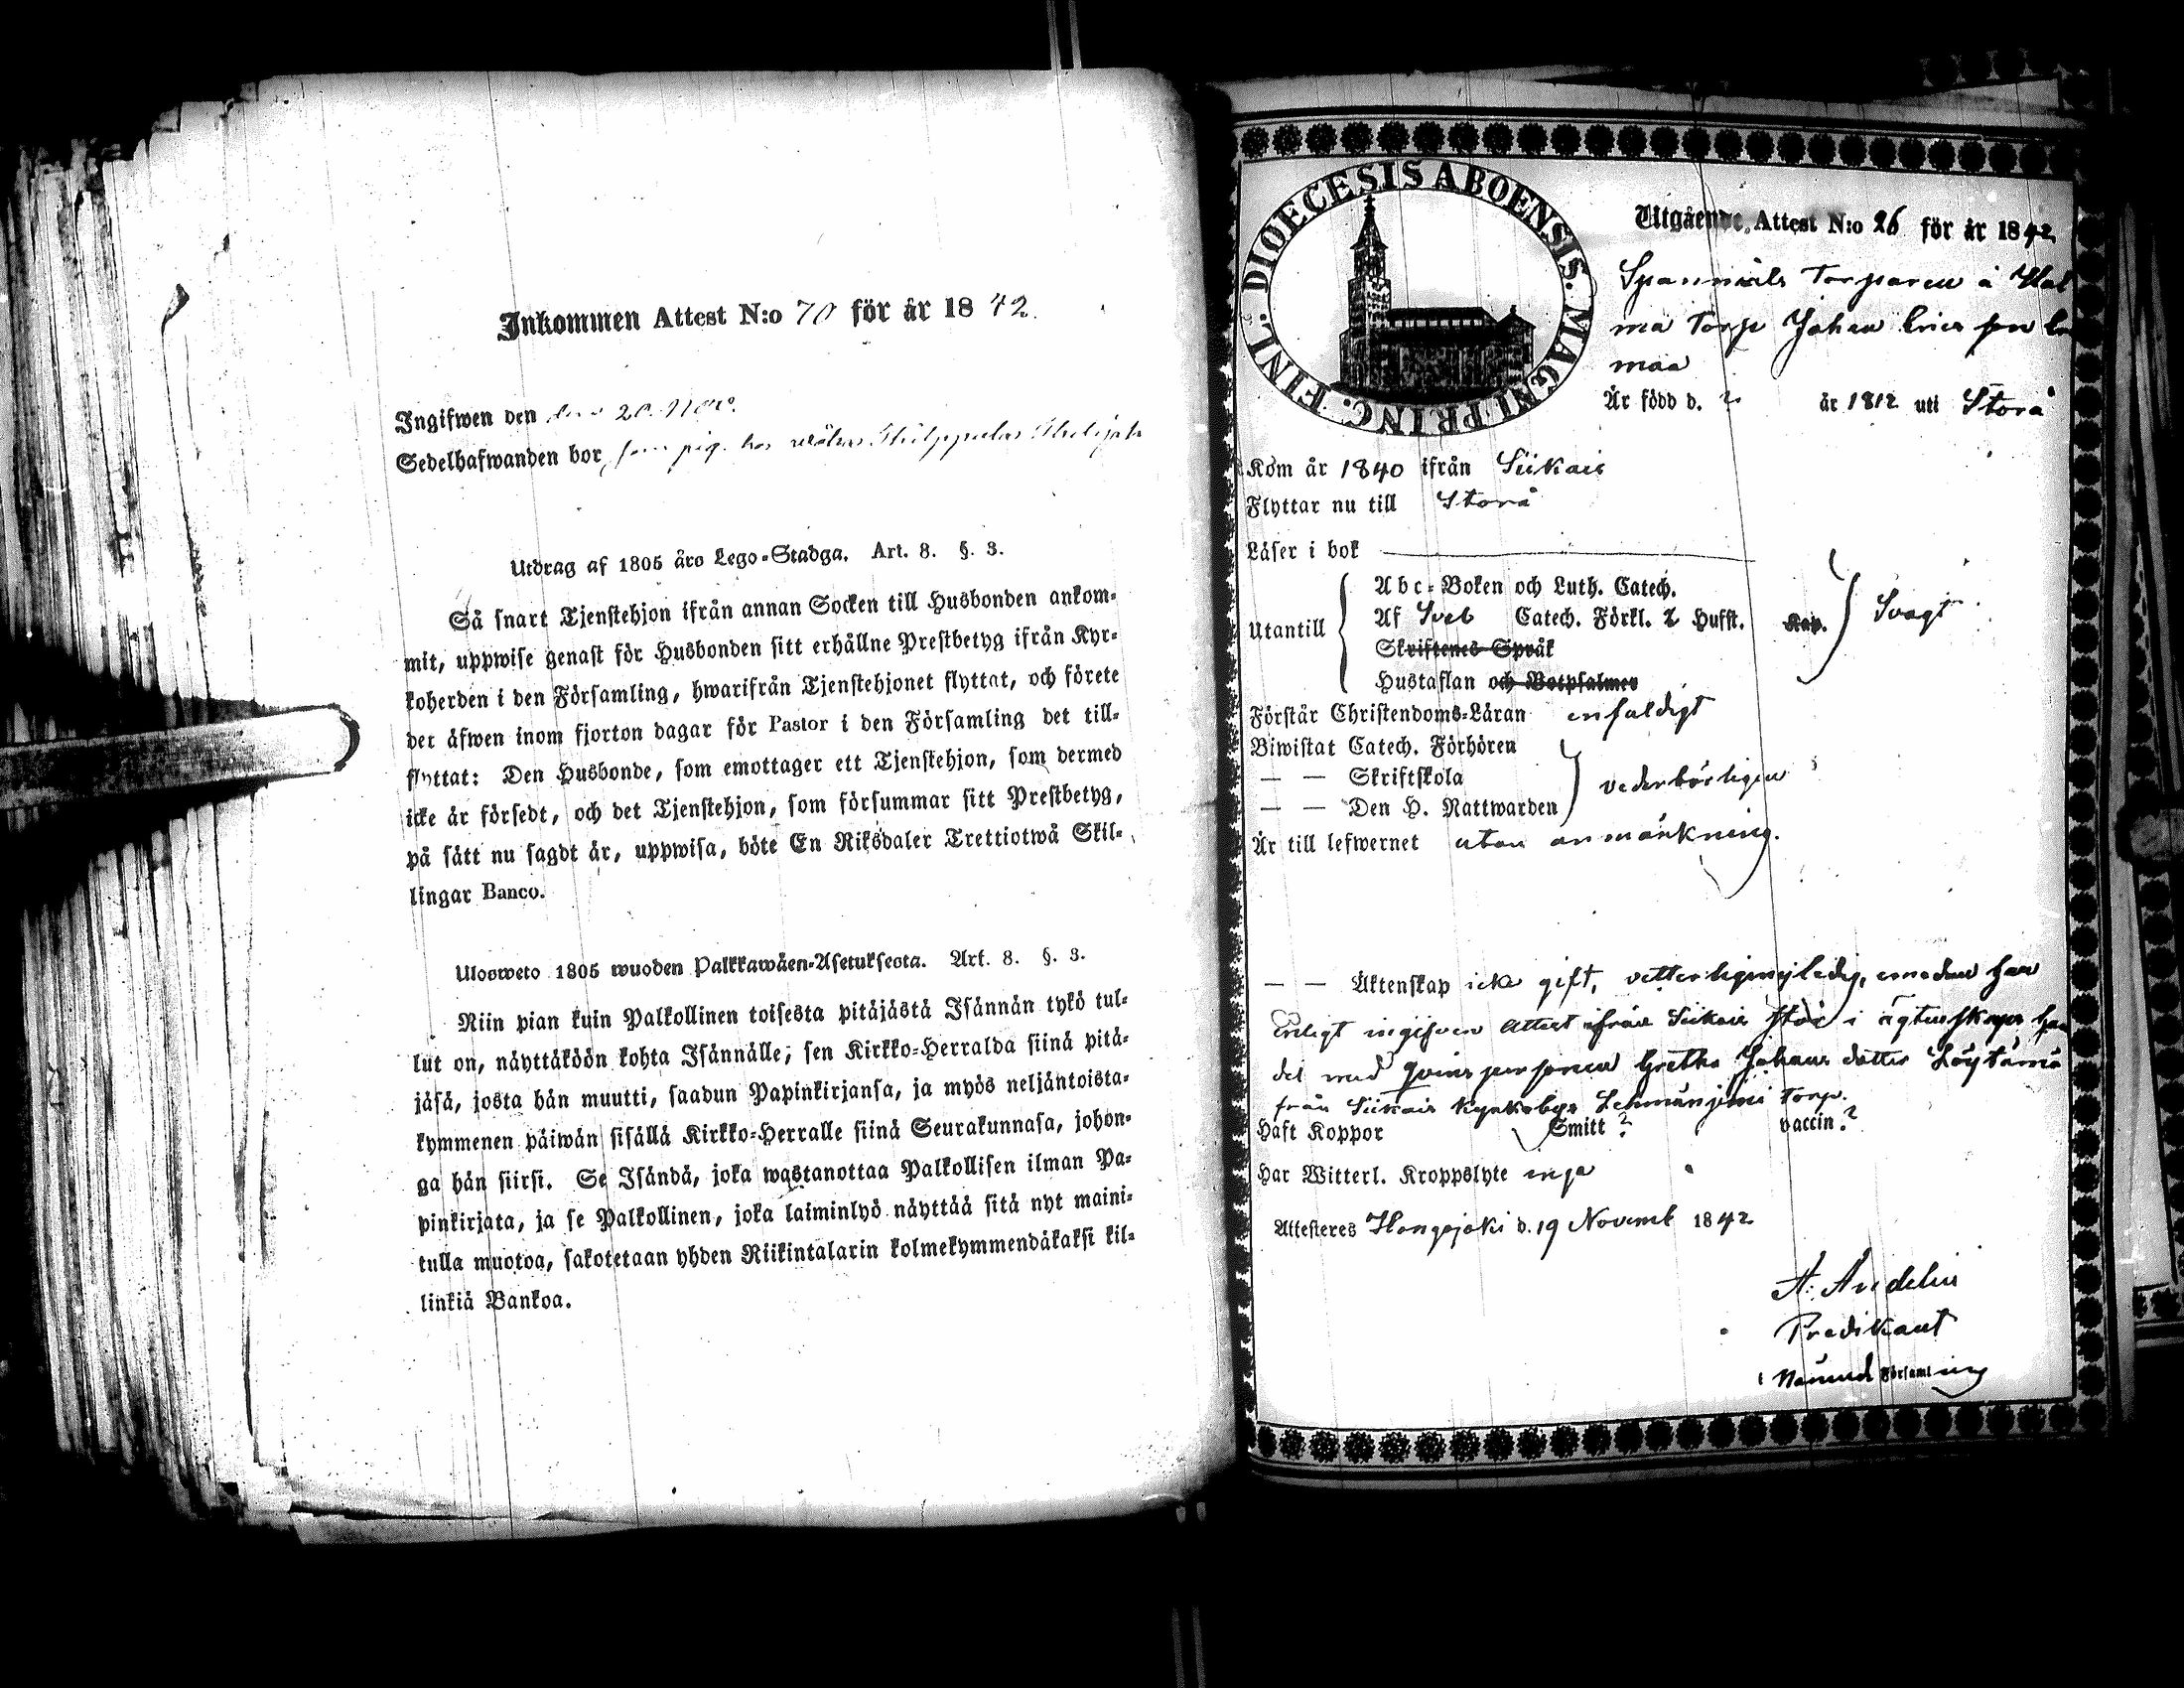 Inkommen Attest N:o 70 för år 1842.
Ingifwen den 20 Nov.
Sedelhafwanden bor som pig. hos
Utdrag af 1805 års Lego-Stadga. Art. 8. §. 3.
Så snart Tjenstehjon ifrån annan Socken till Husbonden ankom-
mit, uppwise genast för Husbonden sitt erhållne Prestbetyg ifrån Kyr-
koherden i den Församling, hwarifrån Tjenstehjonet flyttat, och förete
det äfwen inom fjorton dagar för Pastor i den Församling det till-
flyttat: Den Husbonde, som emottager ett Tjenstehjon, som dermed
icke är försedt, och det Tjenstehjon, som försummar sitt Prestbetyg,
på sätt nu sagdt är, uppwisa, böte En Riksdaler Trettiotwå Skil-
lingar Banco.
Ulosweto 1805 wuoden Palkkawäen-Asetuksesta. Art. 8. §. 3.
Niin pian kuin Palkollinen toisesta pitäjästä Isännän tykö tul-
lut on, näyttäköön kohta Isännälle, sen Kirkko-Herralda siinä pitä-
jäsä, josta hän muutti, saadun Papinkirjansa, ja myös neljäntoista-
kymmenen päiwän sisällä Kirkko-Herralle siinä Seurakunnasa, johon-
ga hän siirsi. Se Isändä, joka wastanottaa Palkollisen ilman Pa-
pinkirjata, ja se Palkollinen, joka laiminlyö näyttää sitä nyt maini-
tulla muotoa, sakotetaan yhden Riikintalarin kolmekymmendäkaksi kil-
linkiä Bankoa.
DIOECESIS ABOENSIS. MAGNI PRINC. FINL.
Utgående Attest N:o 26 för år 1842
Spannmåls Torparen å
ma Torp Johan
maa
Är född d. år 1812 uti Storå
Kom år 1840 ifrån Siikais
Flyttar nu till Storå
Läser i bok
Utantill
Abc-Boken och Luth. Catech.
Af Sveb Catech. Förkl. 2 Hufst. Kap.
Svagt.
Skriftenes Språk
Hustaflan och Botpsalmer
Förstår Christendoms-Läran enfaldigt
Biwistat Catech. Förhören
— — Skriftskola
— — Den H. Nattwarden
vederbörligen
Är till lefwernet utan anmärkning.
— — Äktenskap icke gift, emedan han
Enligt ingifven Attest ifrån Siikais står i ägtenskaps han
del med qvinspersonen Gretha Johans dotter
från Siikais torp.
Haft Koppor Smitt? vaccin.?
Har Witterl. Kroppslyte inga
Attesteres Hongojoki d. 19 Novemb 1842
A.
Predikant
i Församling